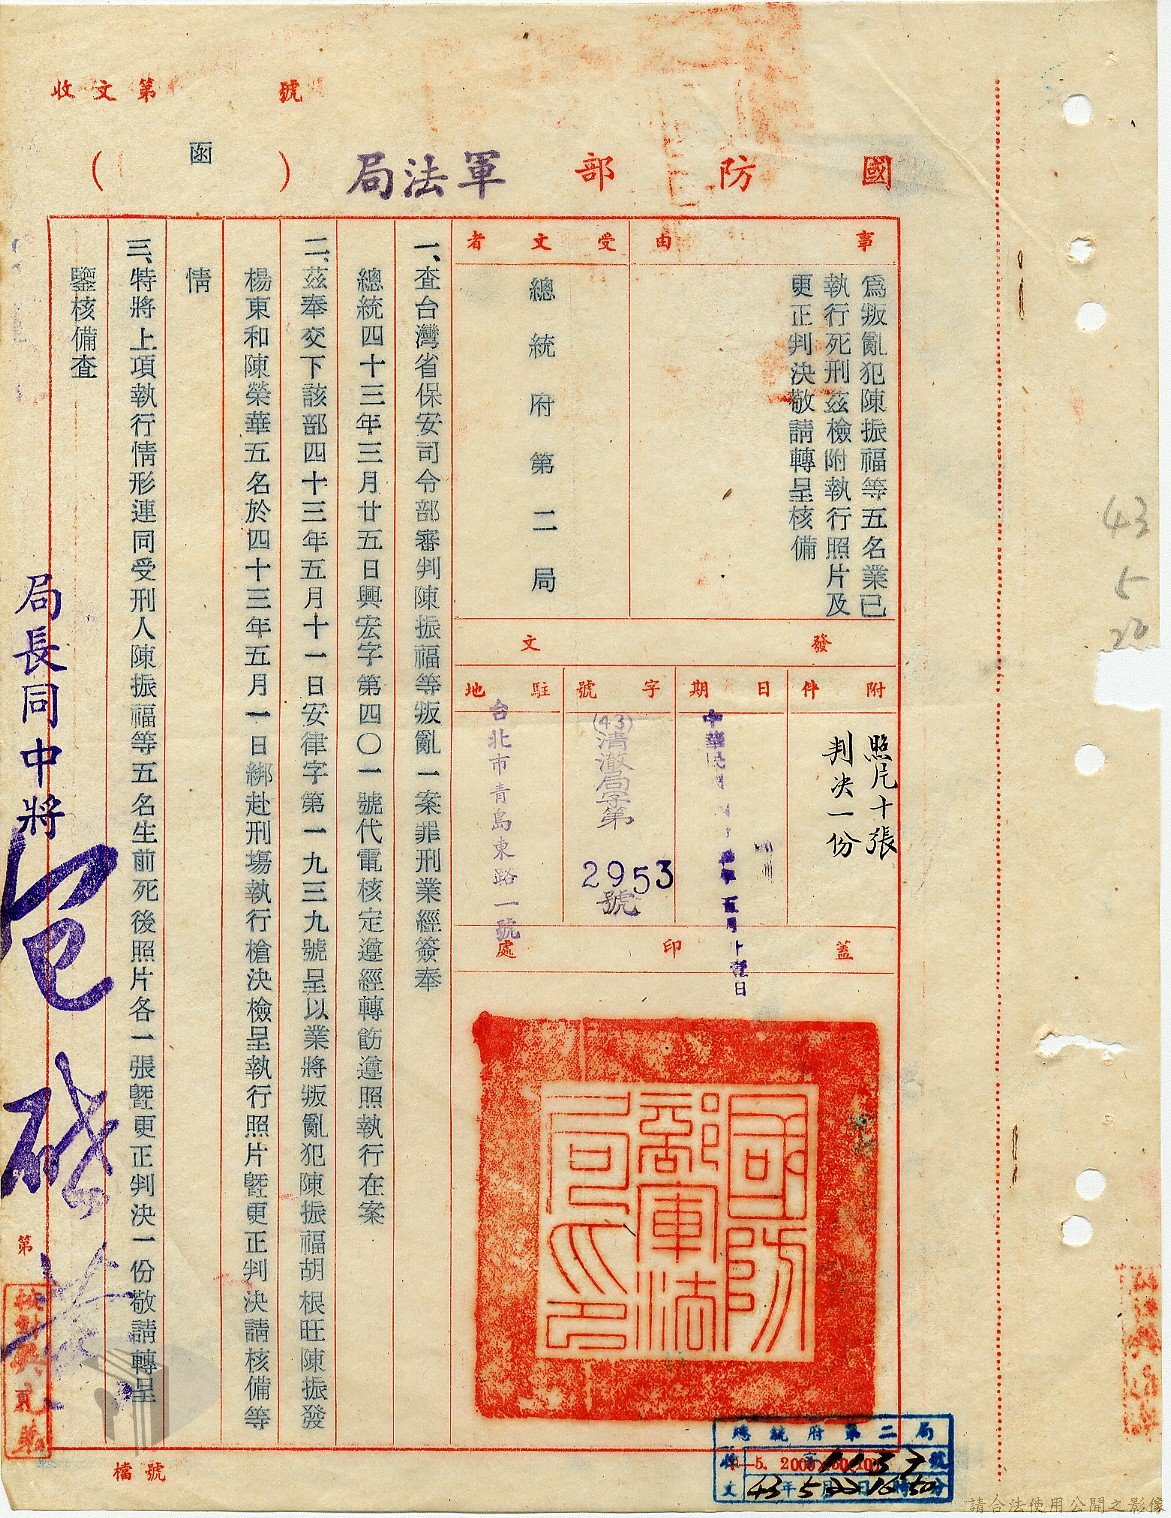 收文第 號
國防部軍法局(函)
事由
為叛亂犯陳振福等五名業已
執行死刑茲檢附執行照片及
更正判決敬請轉呈核備
受文者
總統府第二局
發文
附件
照片十張
判決一份
日期
中華民國
五月
日
字號
(43)清澈局字第
2953
號
駐地
台北市青島東路一號
蓋印處
國防部軍法局印
一、查台灣省保安司令部審判陳振福等叛亂一案罪刑業經簽奉
總統四十三年三月廿五日興宏字第四〇一號代電核定遵經轉飭遵照執行在案
二、茲奉交下該部四十三年五月十一日安律字第一九三九號呈以業將叛亂犯陳振福胡根旺陳振發
楊東和陳榮華五名於四十三年五月一日綁赴刑場執行槍決檢呈執行照片暨更正判決請核備等
情
三、特將上項執行情形連同受刑人陳振福等五名生前死後照片各一張暨更正判決一份敬請轉呈
鑒核備查
局長同中將
包啟黃
第
檔號
總統府第二局
收文
字1137號
43年5月22日16時50分
43
5
22
請合法使用公開之影像